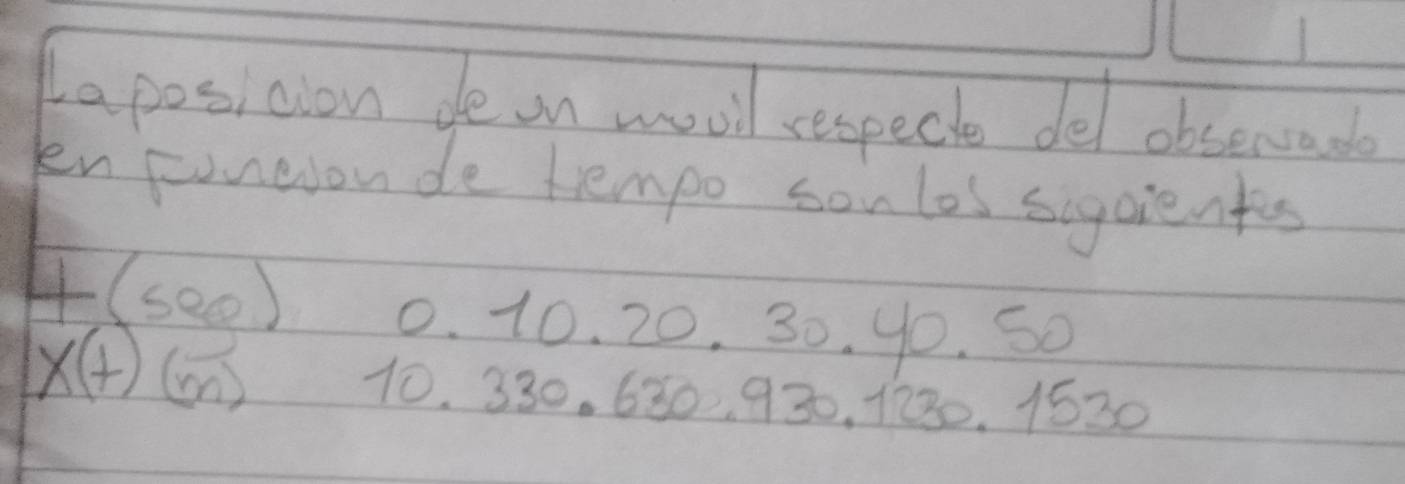 La posicion de un movil respecto del observado
en funcion de tiempo son los sigoientes
t (seg) 0. 10. 20. 30. 40. 50
x(t) (m) 10. 330. 630. 930. 1230. 1530